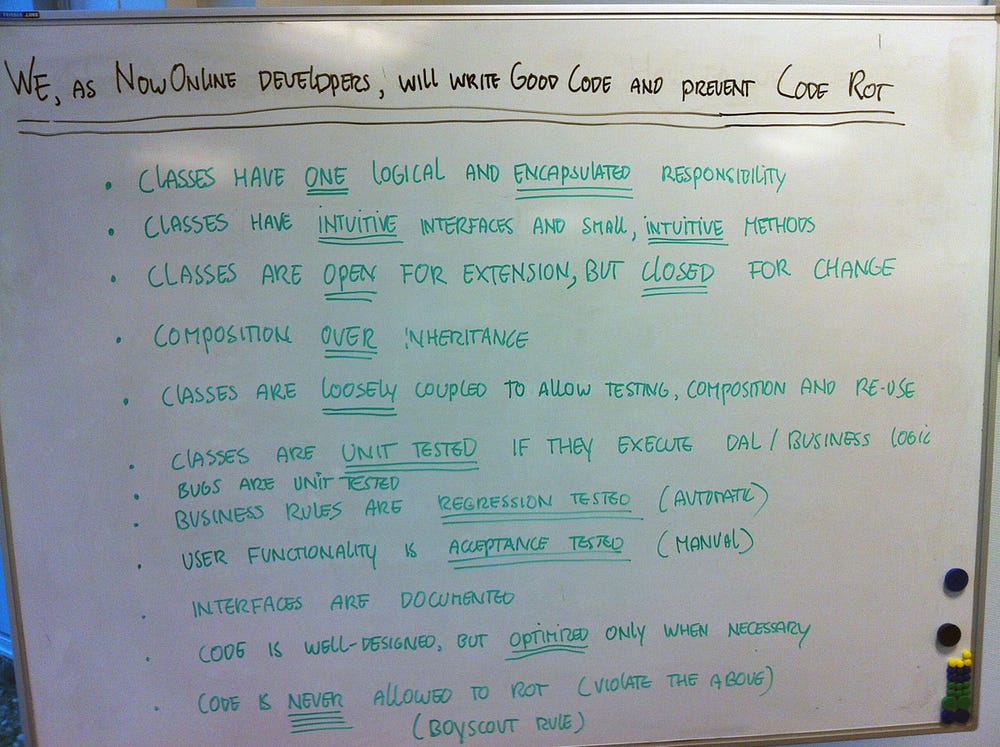 WE, AS NOWONLINE DEVELOPERS, WILL WRITE GOOD CODE AND PREVENT CODE ROT
• CLASSES HAVE ONE LOGICAL AND ENCAPSULATED RESPONSIBILITY
• CLASSES HAVE INTUITIVE INTERFACES AND SMALL, INTUITIVE METHODS
• CLASSES ARE OPEN FOR EXTENSION, BUT CLOSED FOR CHANGE
• COMPOSITION OVER INHERITANCE
• CLASSES ARE LOOSELY COUPLED TO ALLOW TESTING, COMPOSITION AND RE-USE
• CLASSES ARE UNIT TESTED IF THEY EXECUTE DAL / BUSINESS LOGIC
• BUGS ARE UNIT TESTED
• BUSINESS RULES ARE REGRESSION TESTED (AUTOMATIC)
• USER FUNCTIONALITY IS ACCEPTANCE TESTED (MANUAL)
• INTERFACES ARE DOCUMENTED
• CODE IS WELL-DESIGNED, BUT OPTIMIZED ONLY WHEN NECESSARY
• CODE IS NEVER ALLOWED TO ROT (VIOLATE THE ABOVE)
(BOYSCOUT RULE)